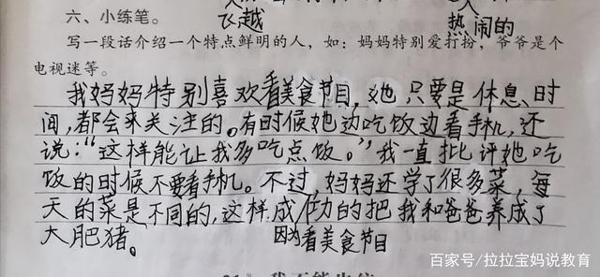 飞越
热闹的
六、小练笔。
写一段话介绍一个特点鲜明的人,如:妈妈特别爱打扮,爷爷是个
电视迷等。
我妈妈特别喜欢看美食节目,她只要是休息时
间,都会来关注的。有时候她边吃饭边看手机,还
说:“这样能让我多吃点饭。”我一直批评她吃
饭的时候不要看手机。不过,妈妈还学了很多菜,每
天的菜是不同的,这样成功的把我和爸爸养成了
大肥猪。
因为看美食节目
百家号/拉拉宝妈说教育